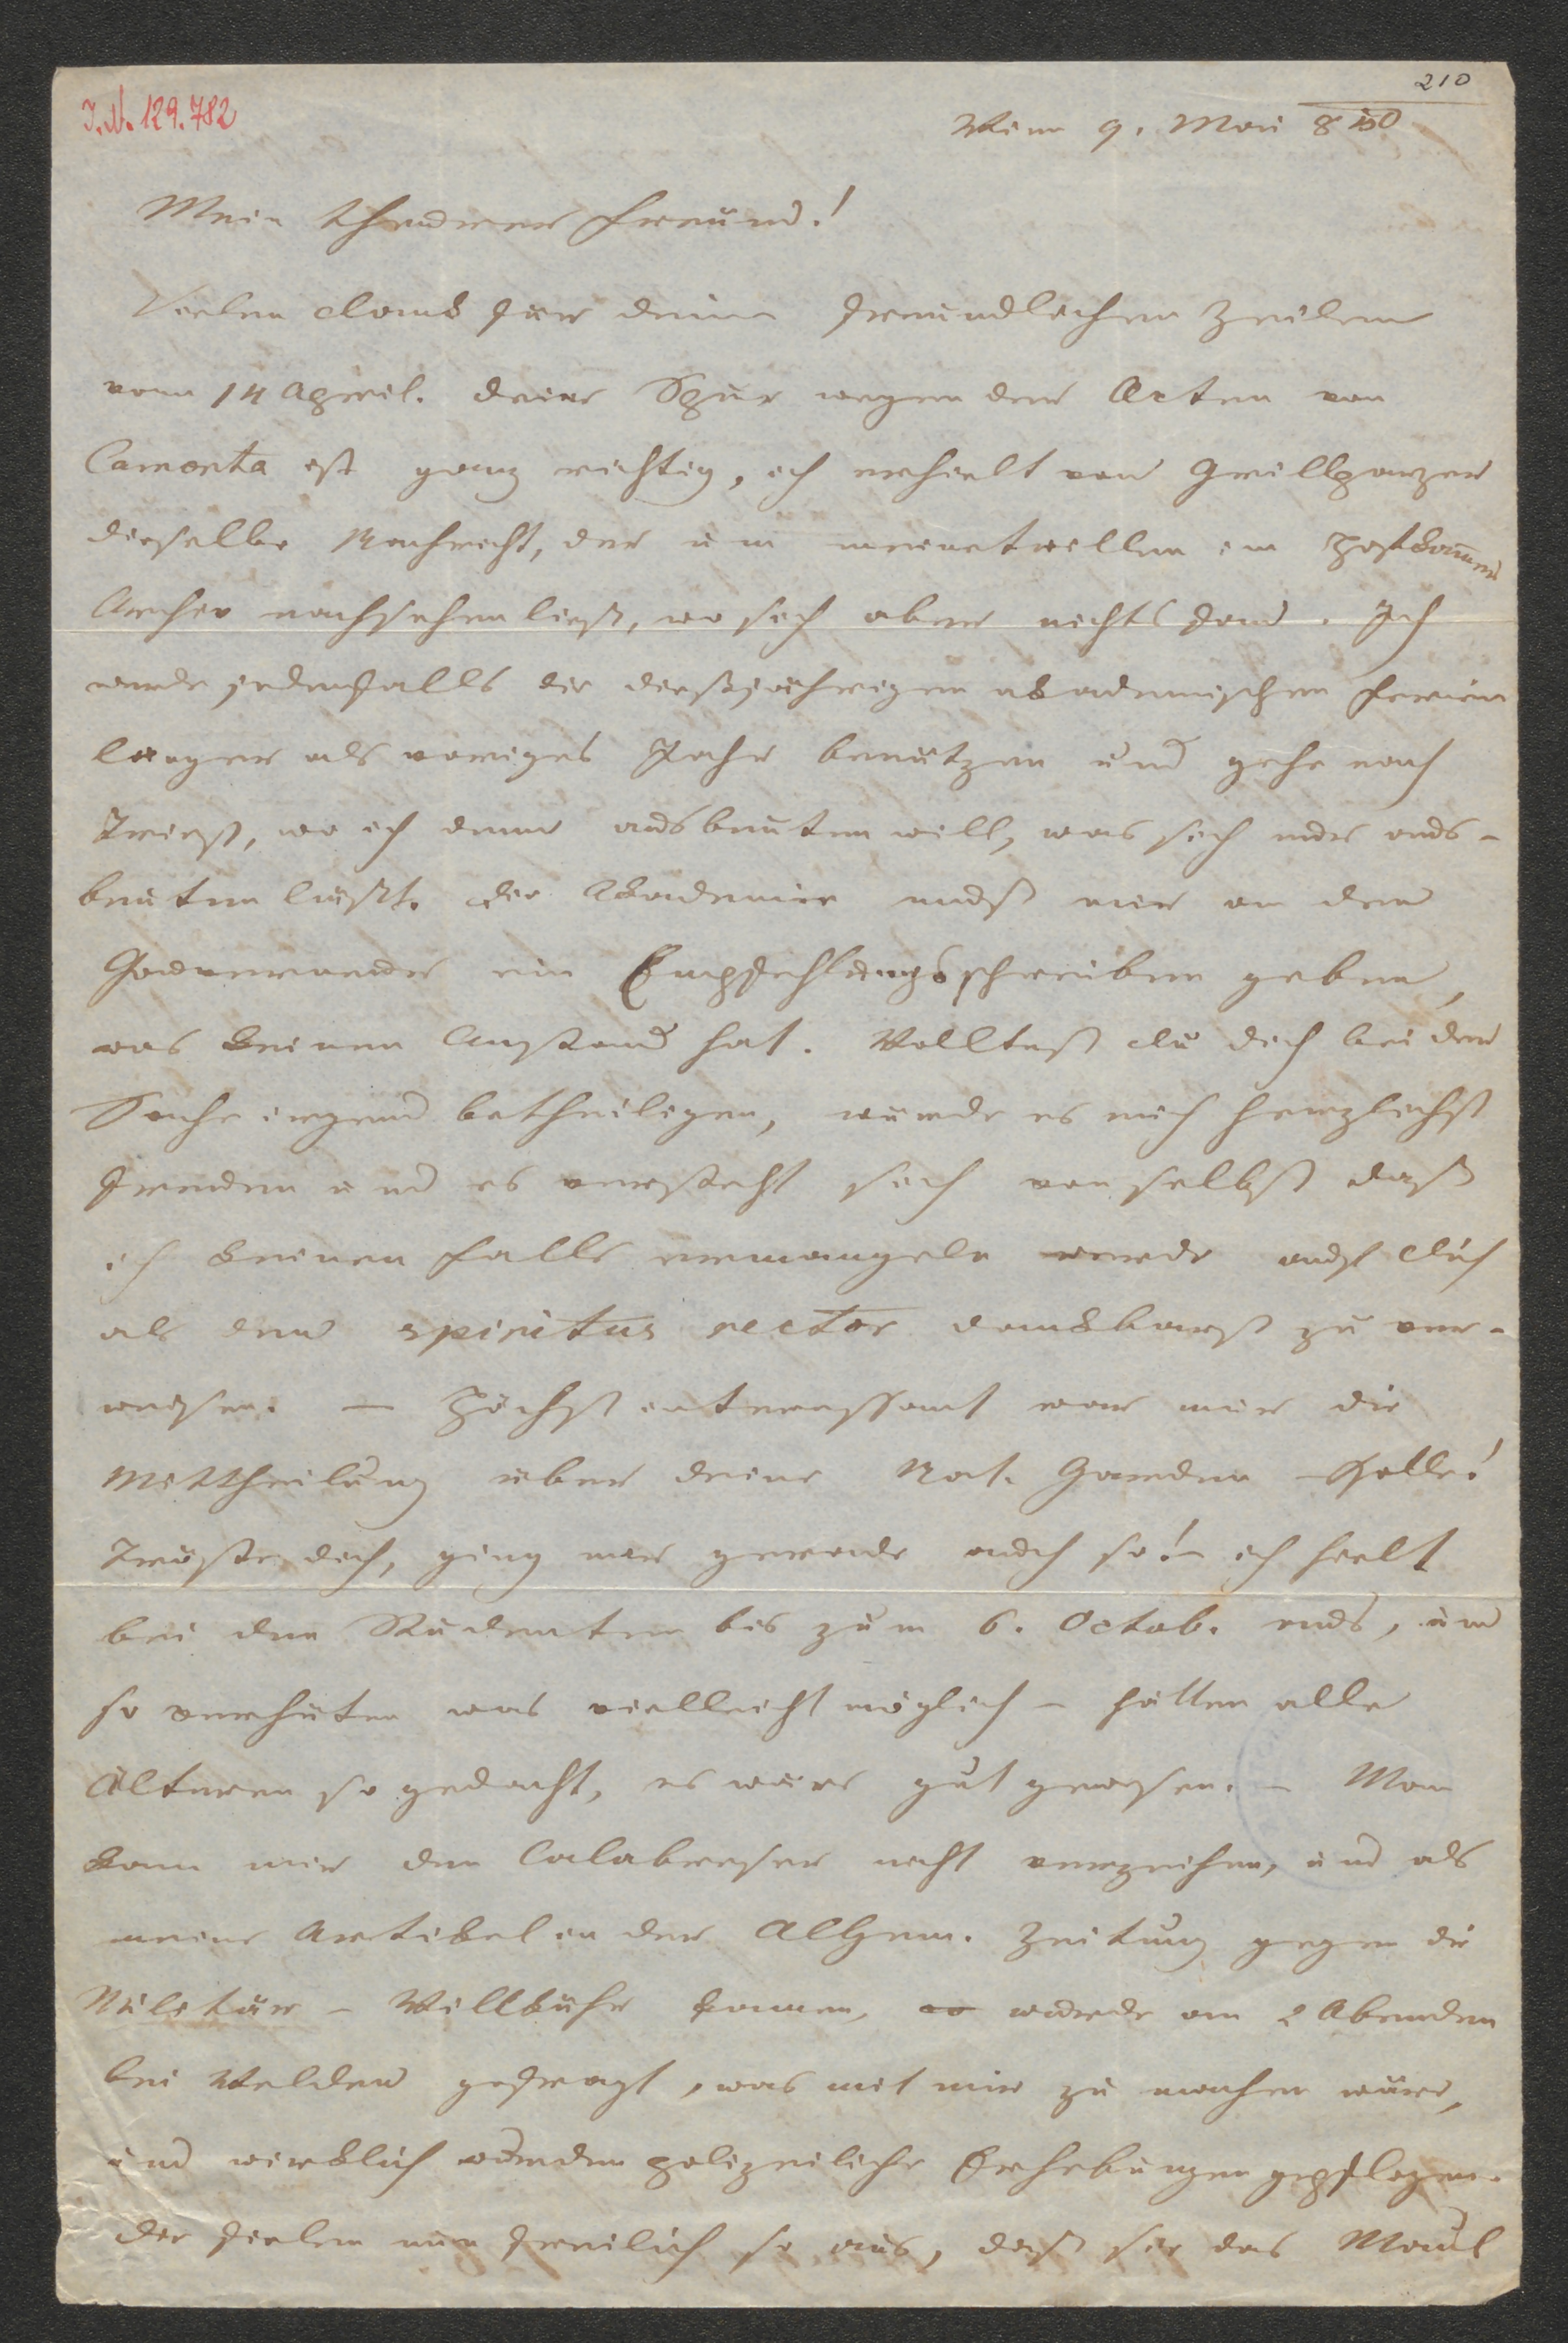 210
I.N. 129.782
Wien 9. Mai 850
Mein theurer Freund!
Vielen Dank für deine freundlichen Zeilen
vom 14 April. Deine Spur wegen der Acten von
Camonta ist ganz richtig, ich erhielt von Grillparzer
dieselbe Nachricht, der um meinetwillen im Hofkamer
Archiv nachsehen ließ, wo sich aber nichts fand. Ich
werde jedenfalls die dießjährigen akademischen Ferien
länger als voriges Jahr benützen und gehe nach
Triest, wo ich dann ausbeuten will, was sich nur aus-
beuten läßt. Die Akademie muß mir an den
Gouverneur ein Empfehlungsschreiben geben,
was keinen Anstand hat. Wolltest du dich bei der
Sache irgend betheiligen, würde es mich herzlichst
freuen und es versteht sich von selbst daß
ich keinen Falls ermangeln werde auf dich
als den spiritus rector dankbarst zu ver-
weisen. — Höchst interessant war mir die
Mittheilung über deine Nat. Garden-Rolle!
Tröste dich, ging mir gerade auch so! – ich hielt
bei den Studenten bis zum 6. Octob. aus, um
zu verhüten was vielleicht möglich – hätten alle
Älteren so gedacht, es wäre gut gewesen. – Man
kann mir den Calabreser nicht verzeihen, und als
meine Artikel in der Allgem. Zeitung gegen die
Militär-Willkühr kamen, wurde an 2 Abenden
bei Welden gefragt, was mit mir zu machen wäre,
und wirklich wurden polizeiliche Erhebungen gepflogen.
Die fielen nun freilich so aus, daß sie das Maul